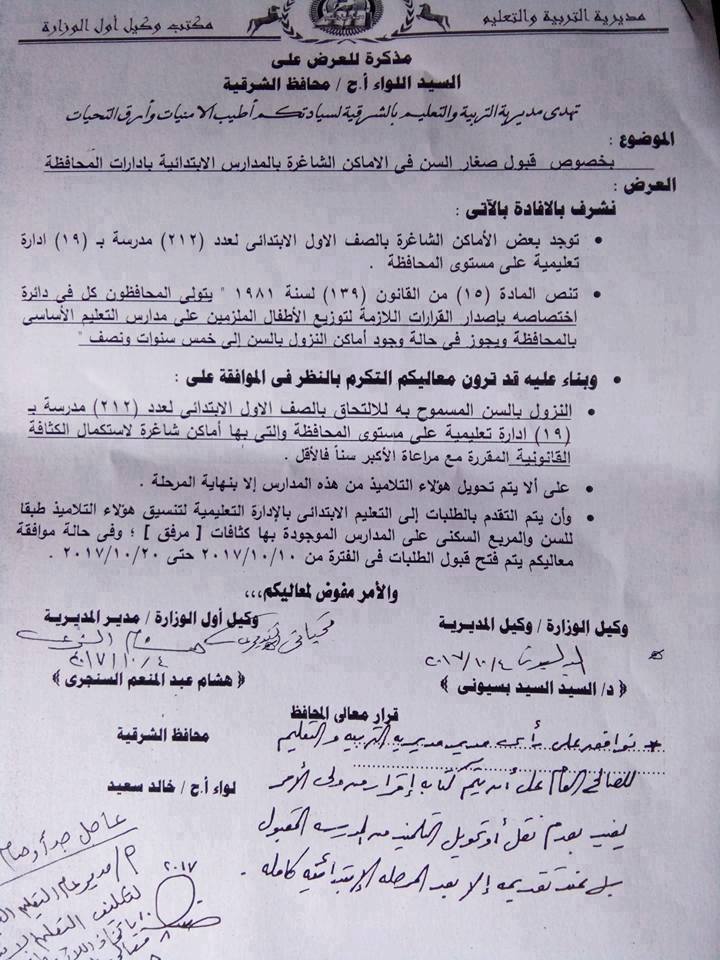 مديرية التربية والتعليم
مكتب وكيل أول الوزارة
مذكرة للعرض على
السيد اللواء أ.ح / محافظ الشرقية
تهدى مديرية التربية والتعليم بالشرقية لسيادتكم أطيب الامنيات وأرق التحيات
الموضوع :
بخصوص قبول صغار السن فى الاماكن الشاغرة بالمدارس الابتدائية بادارات المحافظة
العرض :
نشرف بالافادة بالآتى :
• توجد بعض الأماكن الشاغرة بالصف الاول الابتدائى لعدد (٢١٢) مدرسة بـ (١٩) ادارة
تعليمية على مستوى المحافظة .
• تنص المادة (١٥) من القانون (١٣٩) لسنة ١٩٨١ " يتولى المحافظون كل فى دائرة
اختصاصه بإصدار القرارات اللازمة لتوزيع الأطفال الملزمين على مدارس التعليم الأساسى
بالمحافظة ويجوز فى حالة وجود أماكن النزول بالسن إلى خمس سنوات ونصف "
• وبناء عليه قد ترون معاليكم التكرم بالنظر فى الموافقة على :
• النزول بالسن المسموح به للالتحاق بالصف الاول الابتدائى لعدد (٢١٢) مدرسة بـ
(١٩) ادارة تعليمية على مستوى المحافظة والتى بها أماكن شاغرة لاستكمال الكثافة
القانونية المقررة مع مراعاة الأكبر سناً فالأقل .
• على ألا يتم تحويل هؤلاء التلاميذ من هذه المدارس إلا بنهاية المرحلة .
• وأن يتم التقدم بالطلبات إلى التعليم الابتدائى بالإدارة التعليمية لتنسيق هؤلاء التلاميذ طبقا
للسن والمربع السكنى على المدارس الموجودة بها كثافات [ مرفق ] ؛ وفى حالة موافقة
معاليكم يتم فتح قبول الطلبات فى الفترة من ٢٠١٧/١٠/١٠ حتى ٢٠١٧/١٠/٢٠ .
والأمر مفوض لمعاليكم،،،
وكيل الوزارة / وكيل المديرية
وكيل أول الوزارة / مدير المديرية
٢٠١٧/١٠/٤
٢٠١٧/١٠/٤
﴿ د/ السيد السيد بسيونى ﴾
﴿ هشام عبد المنعم السنجرى ﴾
قرار معالى المحافظ
* نوافق على رأى مدير مديرية التربية والتعليم
للصالح العام على أن يتم كتابة إقرار من ولى الأمر
يفيد بعدم نقل أو تحويل التلميذ من المدرسة المقبول
إلا بعد المرحلة الإبتدائية كاملة .
محافظ الشرقية
لواء أ.ح / خالد سعيد
عاجل جداً وهام
٢٠١٧